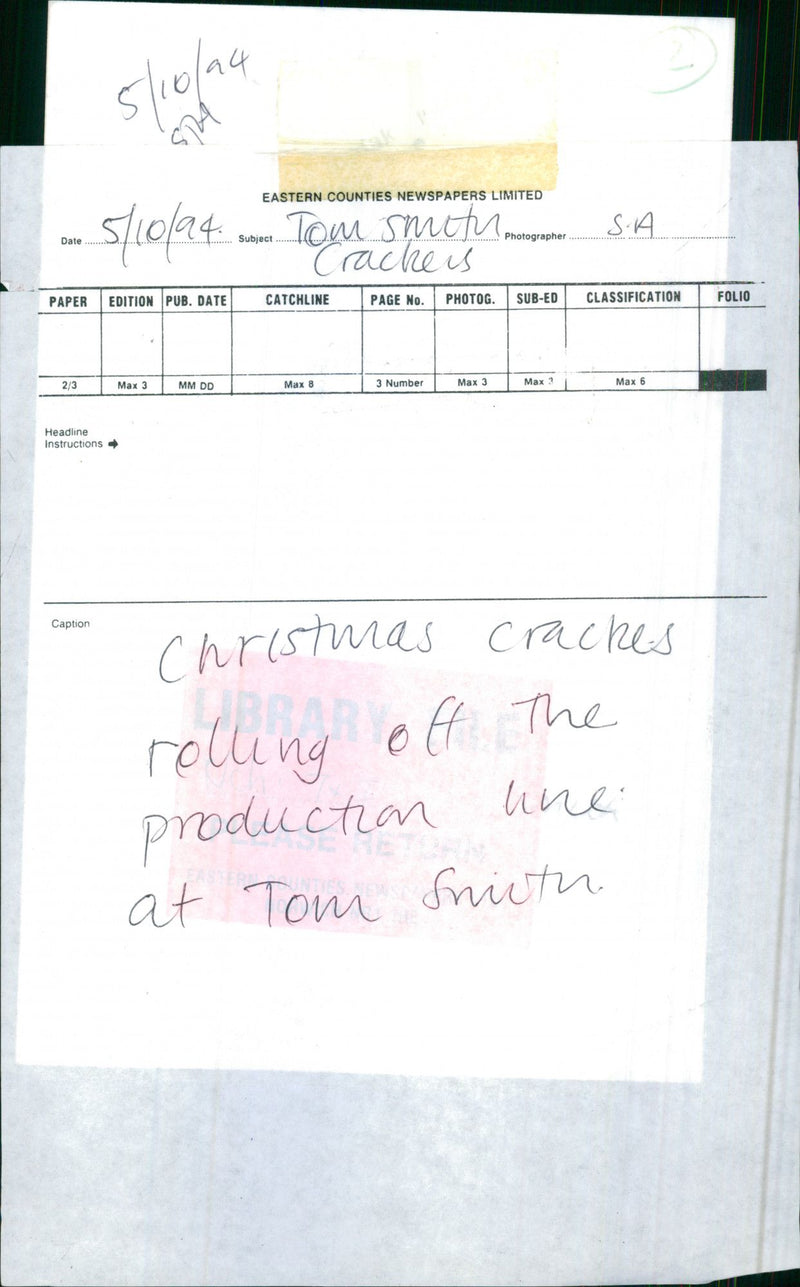 5/10/94
2
EASTERN COUNTIES NEWSPAPERS LIMITED
Date 5/10/94. Subject Tom Smith Photographer S.A
Crackers
PAPER EDITION PUB. DATE CATCHLINE PAGE No. PHOTOG. SUB-ED CLASSIFICATION FOLIO
2/3 Max 3 MM DD Max 8 3 Number Max 3 Max 3 Max 6
Headline
Instructions
Caption
Christmas crackes
rolling off the
production line
at Tom Smith.
LIBRARY FILE
PLEASE RETURN
EASTERN COUNTIES